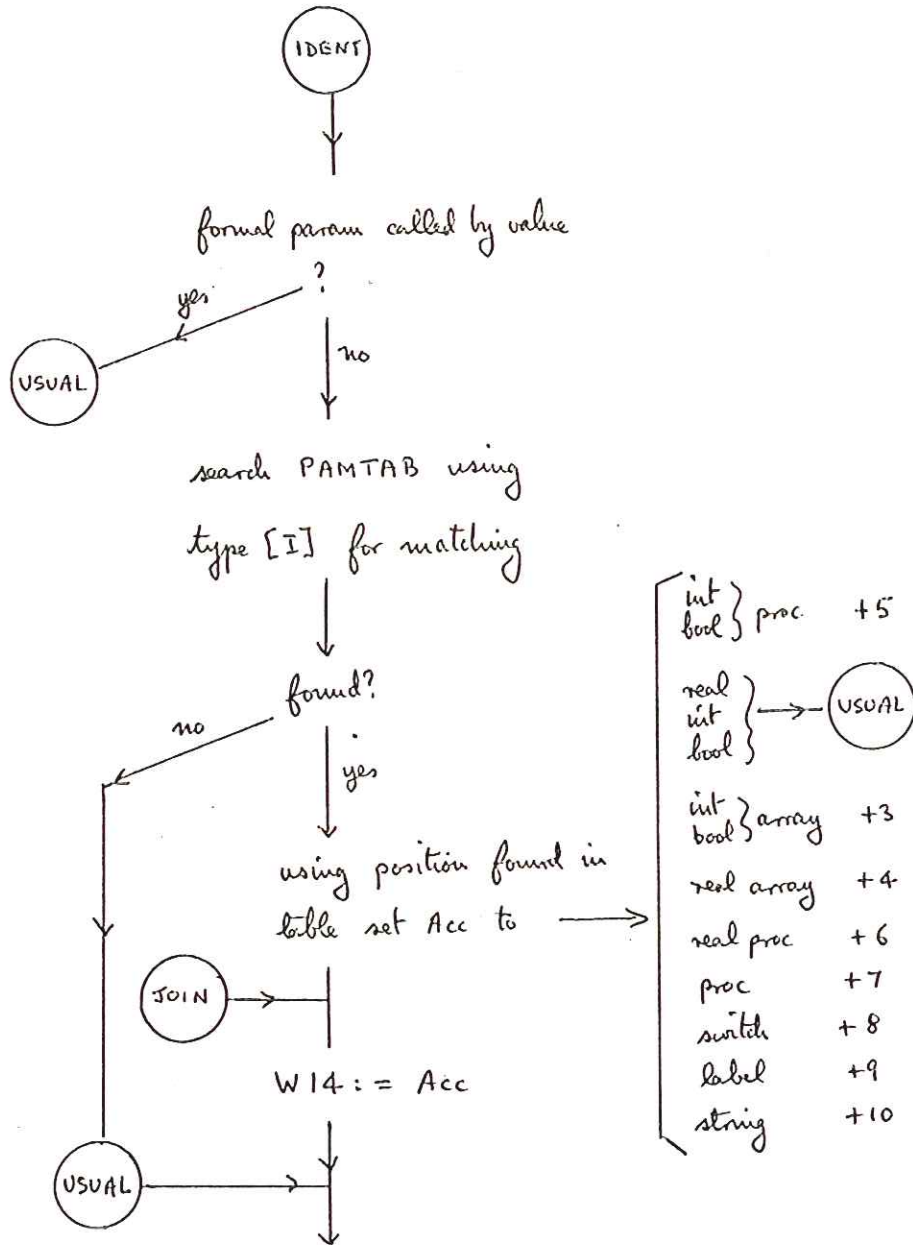 IDENT
formal param called by value
?
yes
USUAL
no
search PAMTAB using
type [I] for matching
found?
no
yes
using position found in
table set Acc to
int
bool
proc. +5
real
int
bool
USUAL
int
bool
array +3
real array +4
real proc +6
proc +7
switch +8
label +9
string +10
JOIN
W14 := Acc
USUAL